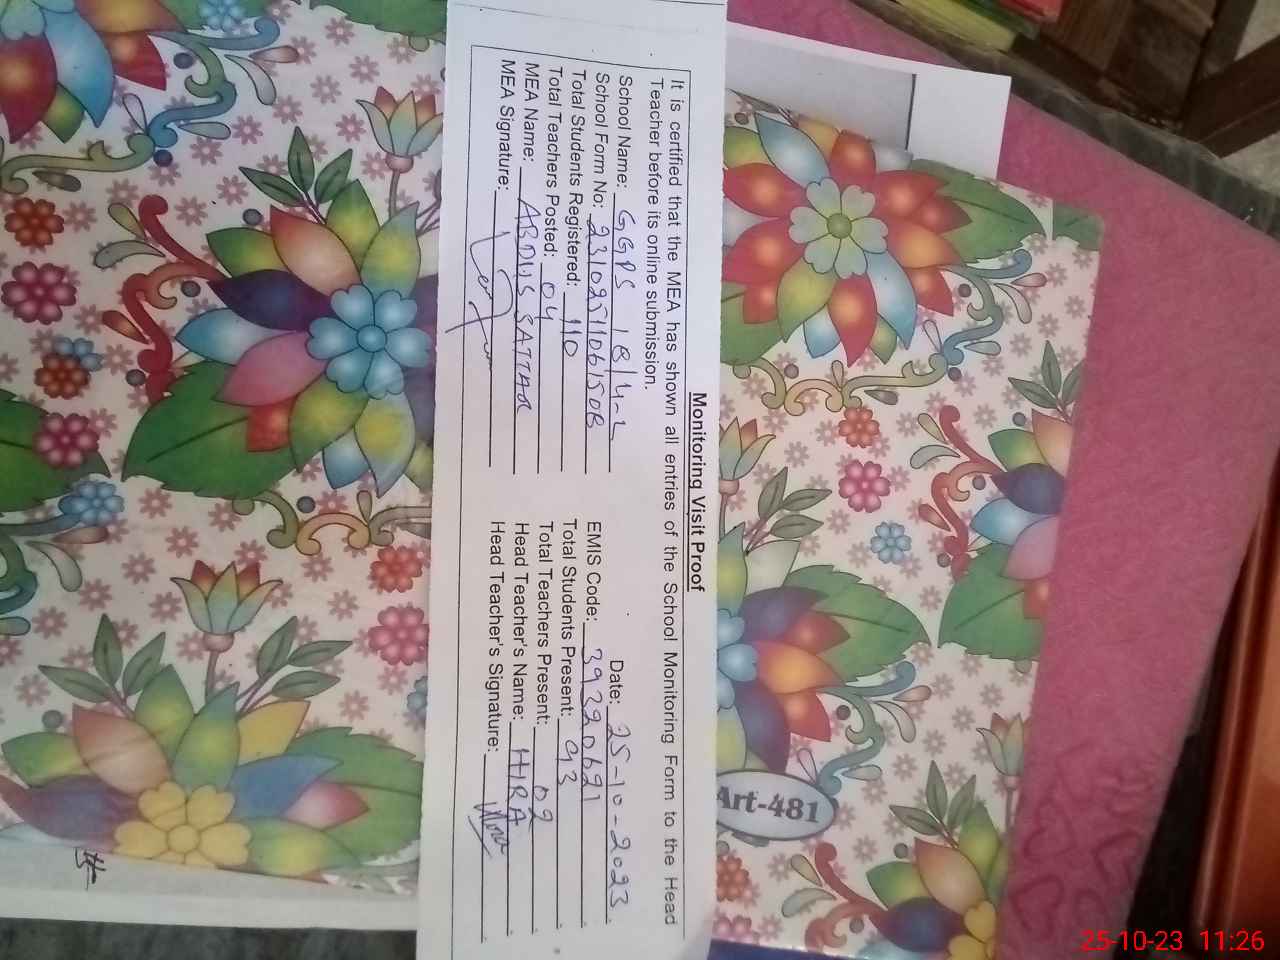 Monitoring Visit Proof
It is certified that the MEA has shown all entries of the School Monitoring Form to the Head
Teacher before its online submission.
Date: 25-10-2023
School Name: GGPS 18/4-L
EMIS Code: 39320621
School Form No: 231025110615OB
Total Students Present: 93
Total Students Registered: 110
Total Teachers Present: 02
Total Teachers Posted: 04
Head Teacher's Name: HIRA
MEA Name: ABDUS SATTAR
Head Teacher's Signature:
MEA Signature:
Art-481
25-10-23 11:26